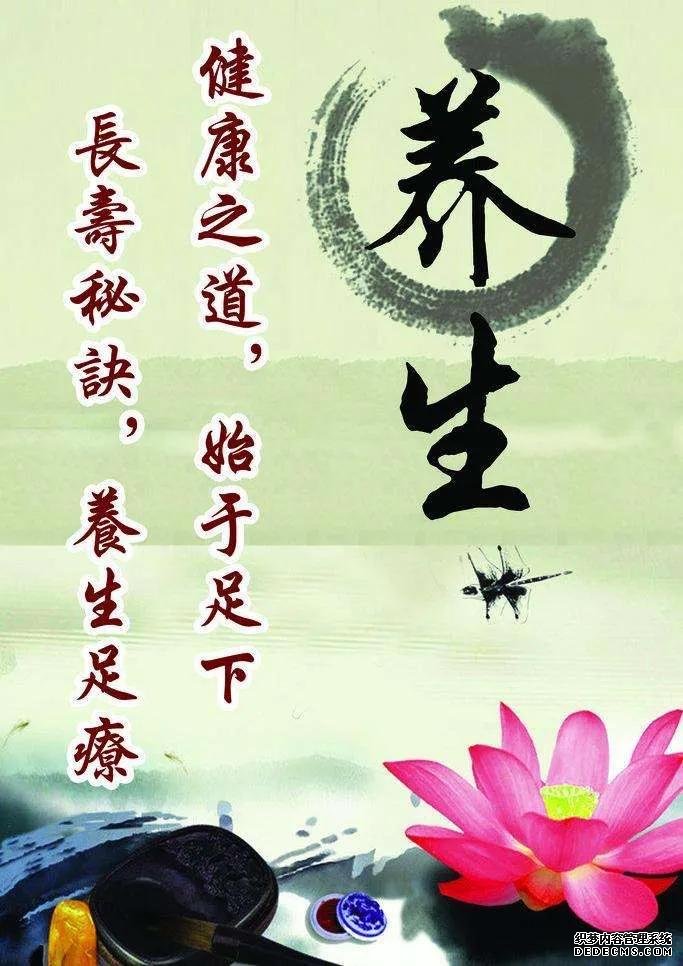 养生
健康之道，始于足下
長壽秘訣，養生足療
织梦内容管理系统
DEDECMS.COM